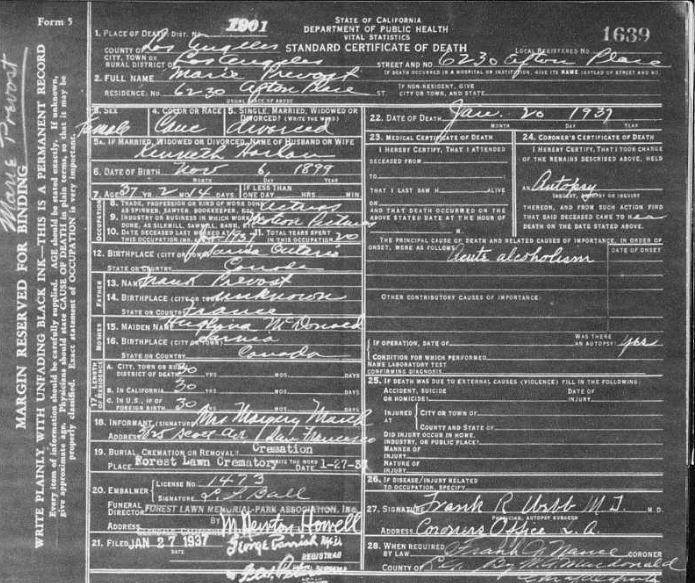 Form 5
1901
STATE OF CALIFORNIA
DEPARTMENT OF PUBLIC HEALTH
VITAL STATISTICS
STANDARD CERTIFICATE OF DEATH
1639
LOCAL REGISTERED NO.
1. PLACE OF DEATH: DIST. NO.
COUNTY OF Los Angeles
CITY, TOWN OR RURAL DISTRICT OF Los Angeles STREET AND NO. 6230 Afton Place
IF DEATH OCCURRED IN A HOSPITAL OR INSTITUTION, GIVE ITS NAME INSTEAD OF STREET AND NO.
2. FULL NAME Marie Prevost
RESIDENCE. NO. 6230 Afton Place IF NON-RESIDENT, GIVE CITY OR TOWN, AND STATE
USUAL PLACE OF ABODE
3. SEX Female
4. COLOR OR RACE Cauc
5. SINGLE, MARRIED, WIDOWED OR DIVORCED? (WRITE THE WORD) divorced
5A. IF MARRIED, WIDOWED OR DIVORCED, NAME OF HUSBAND OR WIFE
Kenneth Harlan
6. DATE OF BIRTH Nov 6 1899
MONTH DAY YEAR
7. AGE 37 YR. 2 MOS. 14 DAYS IF LESS THAN ONE DAY HRS. MIN
8. TRADE, PROFESSION OR KIND OF WORK DONE AS SPINNER, SAWYER, BOOKKEEPER, ETC. Actress
9. INDUSTRY OR BUSINESS IN WHICH WORK DONE, AS SILKMILL, SAWMILL, BANK, ETC. Motion Pictures
10. DATE DECEASED LAST WORKED AT THIS OCCUPATION
11. TOTAL YEARS SPENT IN THIS OCCUPATION 20
12. BIRTHPLACE (CITY OR TOWN) Sarnia Ontario
STATE OR COUNTRY Canada
FATHER
13. NAME Frank Prevost
14. BIRTHPLACE (CITY OR TOWN) unknown
STATE OR COUNTRY France
MOTHER
15. MAIDEN NAME McDonald
16. BIRTHPLACE (CITY OR TOWN) Sarnia
STATE OR COUNTRY Canada
17. LENGTH OF RESIDENCE
A. CITY, TOWN OR RURAL DISTRICT OF DEATH YRS. MOS. DAYS
B. IN CALIFORNIA 30 YRS. MOS. DAYS
C. IN U.S., IF OF FOREIGN BIRTH 30 YRS. MOS. DAYS
18. INFORMANT (SIGNATURE) Mrs Margery March
ADDRESS Scott St San Francisco
19. BURIAL, CREMATION OR REMOVAL? Cremation
WRITE THE WORD
PLACE Forest Lawn Crematory DATE 1-27-37
20. EMBALMER LICENSE NO. 1473
SIGNATURE L. A. Ball
FUNERAL DIRECTOR FOREST LAWN MEMORIAL-PARK ASSOCIATION, Inc.
ADDRESS BY M. Newton Howell
21. FILED JAN 27 1937 George Parrish M.D.
DATE REGISTRAR
22. DATE OF DEATH Jan. 20 1937
MONTH DAY YEAR
23. MEDICAL CERTIFICATE OF DEATH
I HEREBY CERTIFY, THAT I ATTENDED
DECEASED FROM
TO
THAT I LAST SAW H ALIVE
ON
AND THAT DEATH OCCURRED ON THE ABOVE STATED DATE AT THE HOUR OF M.
24. CORONER'S CERTIFICATE OF DEATH
I HEREBY CERTIFY, THAT I TOOK CHARGE OF THE REMAINS DESCRIBED ABOVE, HELD
AN Autopsy
INQUEST, AUTOPSY OR INQUIRY
THEREON, AND FROM SUCH ACTION FIND THAT SAID DECEASED CAME TO DEATH ON THE DATE STATED ABOVE.
THE PRINCIPAL CAUSE OF DEATH AND RELATED CAUSES OF IMPORTANCE, IN ORDER OF ONSET, WERE AS FOLLOWS: DATE OF ONSET
Acute alcoholism
OTHER CONTRIBUTORY CAUSES OF IMPORTANCE:
IF OPERATION, DATE OF WAS THERE AN AUTOPSY? yes
CONDITION FOR WHICH PERFORMED
NAME LABORATORY TEST
CONFIRMING DIAGNOSIS
25. IF DEATH WAS DUE TO EXTERNAL CAUSES (VIOLENCE) FILL IN THE FOLLOWING:
ACCIDENT, SUICIDE OR HOMICIDE? DATE OF INJURY
INJURED AT CITY OR TOWN OF
COUNTY AND STATE OF
DID INJURY OCCUR IN HOME, INDUSTRY, OR PUBLIC PLACE?
MANNER OF INJURY
NATURE OF INJURY
26. IF DISEASE/INJURY RELATED TO OCCUPATION, SPECIFY
27. SIGNATURE Frank R. Webb M.D. M.D.
PHYSICIAN, AUTOPSY SURGEON
ADDRESS Coroners Office L.A.
28. WHEN REQUIRED BY LAW Frank A. Nance CORONER
COUNTY OF By Macdonald
Marie Prevost
MARGIN RESERVED FOR BINDING
WRITE PLAINLY, WITH UNFADING BLACK INK—THIS IS A PERMANENT RECORD
Every item of information should be carefully supplied. AGE should be stated exactly. If unknown,
give approximate age. Physicians should state CAUSE OF DEATH in plain terms, so that it may be
properly classified. Exact statement of OCCUPATION is very important.